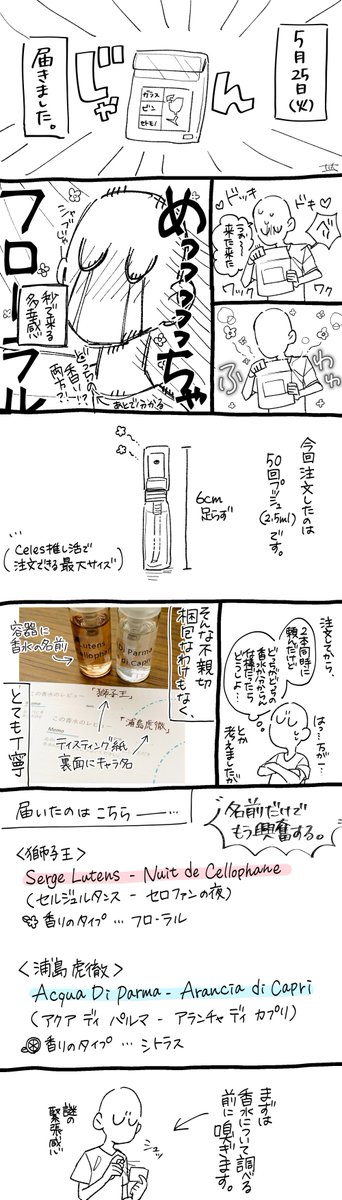 5月25日(火)
じゃん
ガラス
ビン
セトモノ
届きました。
ドッキ
ドキ
ベリ
うわ〜
来た来た
ワック
ワク
ふわ
わ
めっっっっちゃ
フローラル
シャブ
秒で来る
多幸感
どっちの
香り!?
両方?!
あとで分かる
今回注文したのは
50回プッシュ
(2.5ml)
です。
6cm
足らず
(Celes推し活で
注文できる最大サイズ)
注文してから、
2本同時に
頼んだけど
どっちがどっちの
香水か分からん
仕様だったら
どうしよ…
はっ…万が一…
とか
考えましたが
そんな不親切
梱包なわけもなく、
容器に
香水の名前
Lutens
Cellophane
Parma
di Capri
この香水のレビュー
「獅子王」
Memo
「浦島虎徹」
ティスティング紙
裏面にキャラ名
とても丁寧
届いたのはこちら――…
名前だけで
もう興奮する。
<獅子王>
Serge Lutens - Nuit de Cellophane
(セルジュルタンス - セロファンの夜)
香りのタイプ…フローラル
<浦島虎徹>
Acqua Di Parma - Arancia di Capri
(アクア ディ パルマ - アランチャ ディ カプリ)
香りのタイプ…シトラス
まずは
香水について調べる
前に嗅ぎます。
シュッ
謎の
緊張感